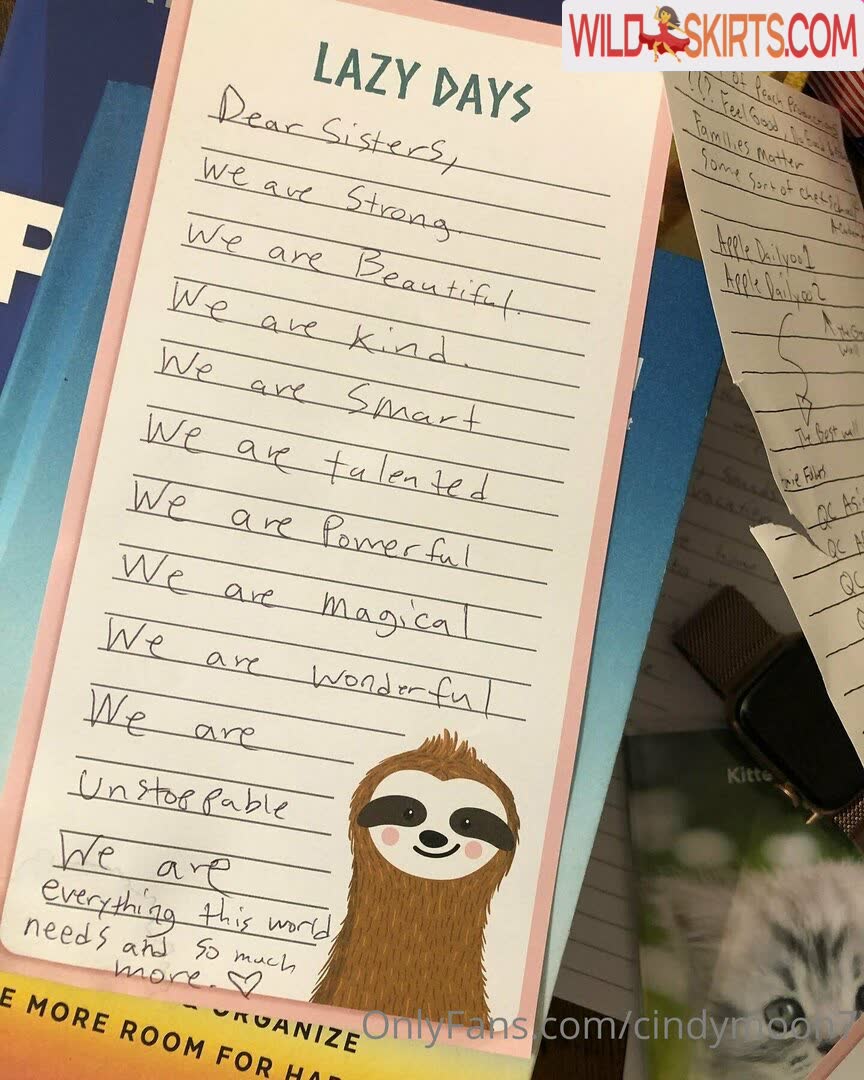 WILD SKIRTS.COM
LAZY DAYS
Dear Sisters,
We are Strong.
We are Beautiful.
We are Kind.
We are Smart
We are talented
We are Powerful
We are magical
We are wonderful
We are
Unstoppable
We are
everything this world
needs and so much
more. ♡
of Peach
??? Feel Good, Do Good
Families matter
Some sort of
Apple Daily001
Apple Daily002
The Best wall
QC
QC
QC
P
Kitte
& ORGANIZE
E MORE ROOM FOR HA
OnlyFans.com/cindymoon7